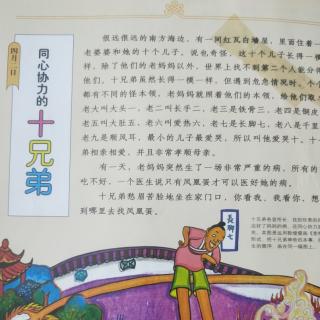 四月二日
同心协力的
十兄弟
很远很远的南方海边，有一间红瓦白墙屋，里面住着一
老婆婆和她的十个儿子，说也奇怪，这十个儿子长得一模
样，除了他们的老妈妈以外，世界上找不到第二个人能分得
他们。十兄弟虽然长得一模一样，但遇到危急情况时，个个
都有不同的怪本领，老妈妈就跟着他们的本领，给他们取
老大叫大头一、老二叫长手二、老三是铁骨三、老四是铜皮
老五叫大肚五、老六叫爱热六、七是长脚七、老八是千里
老九是顺风耳，最小的儿子最爱哭，所以叫他爱哭十。十
弟相亲相爱，并且非常孝顺母亲。
有一天，老妈妈突然生了一场非常严重的病，所有的
吃不好，一个医生说只有凤凰蛋才可以医好她的病。
十兄弟愁眉苦脸地坐在家门口，你看我、我看你，想
到哪里去找凤凰蛋。
長脚七